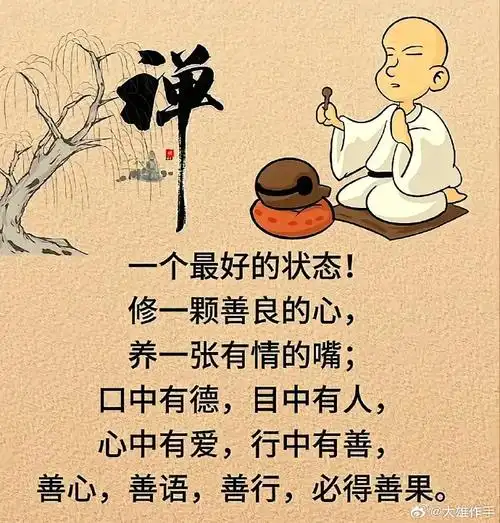 禅
一个最好的状态！
修一颗善良的心，
养一张有情的嘴；
口中有德，目中有人，
心中有爱，行中有善，
善心，善语，善行，必得善果。
@大雄作手